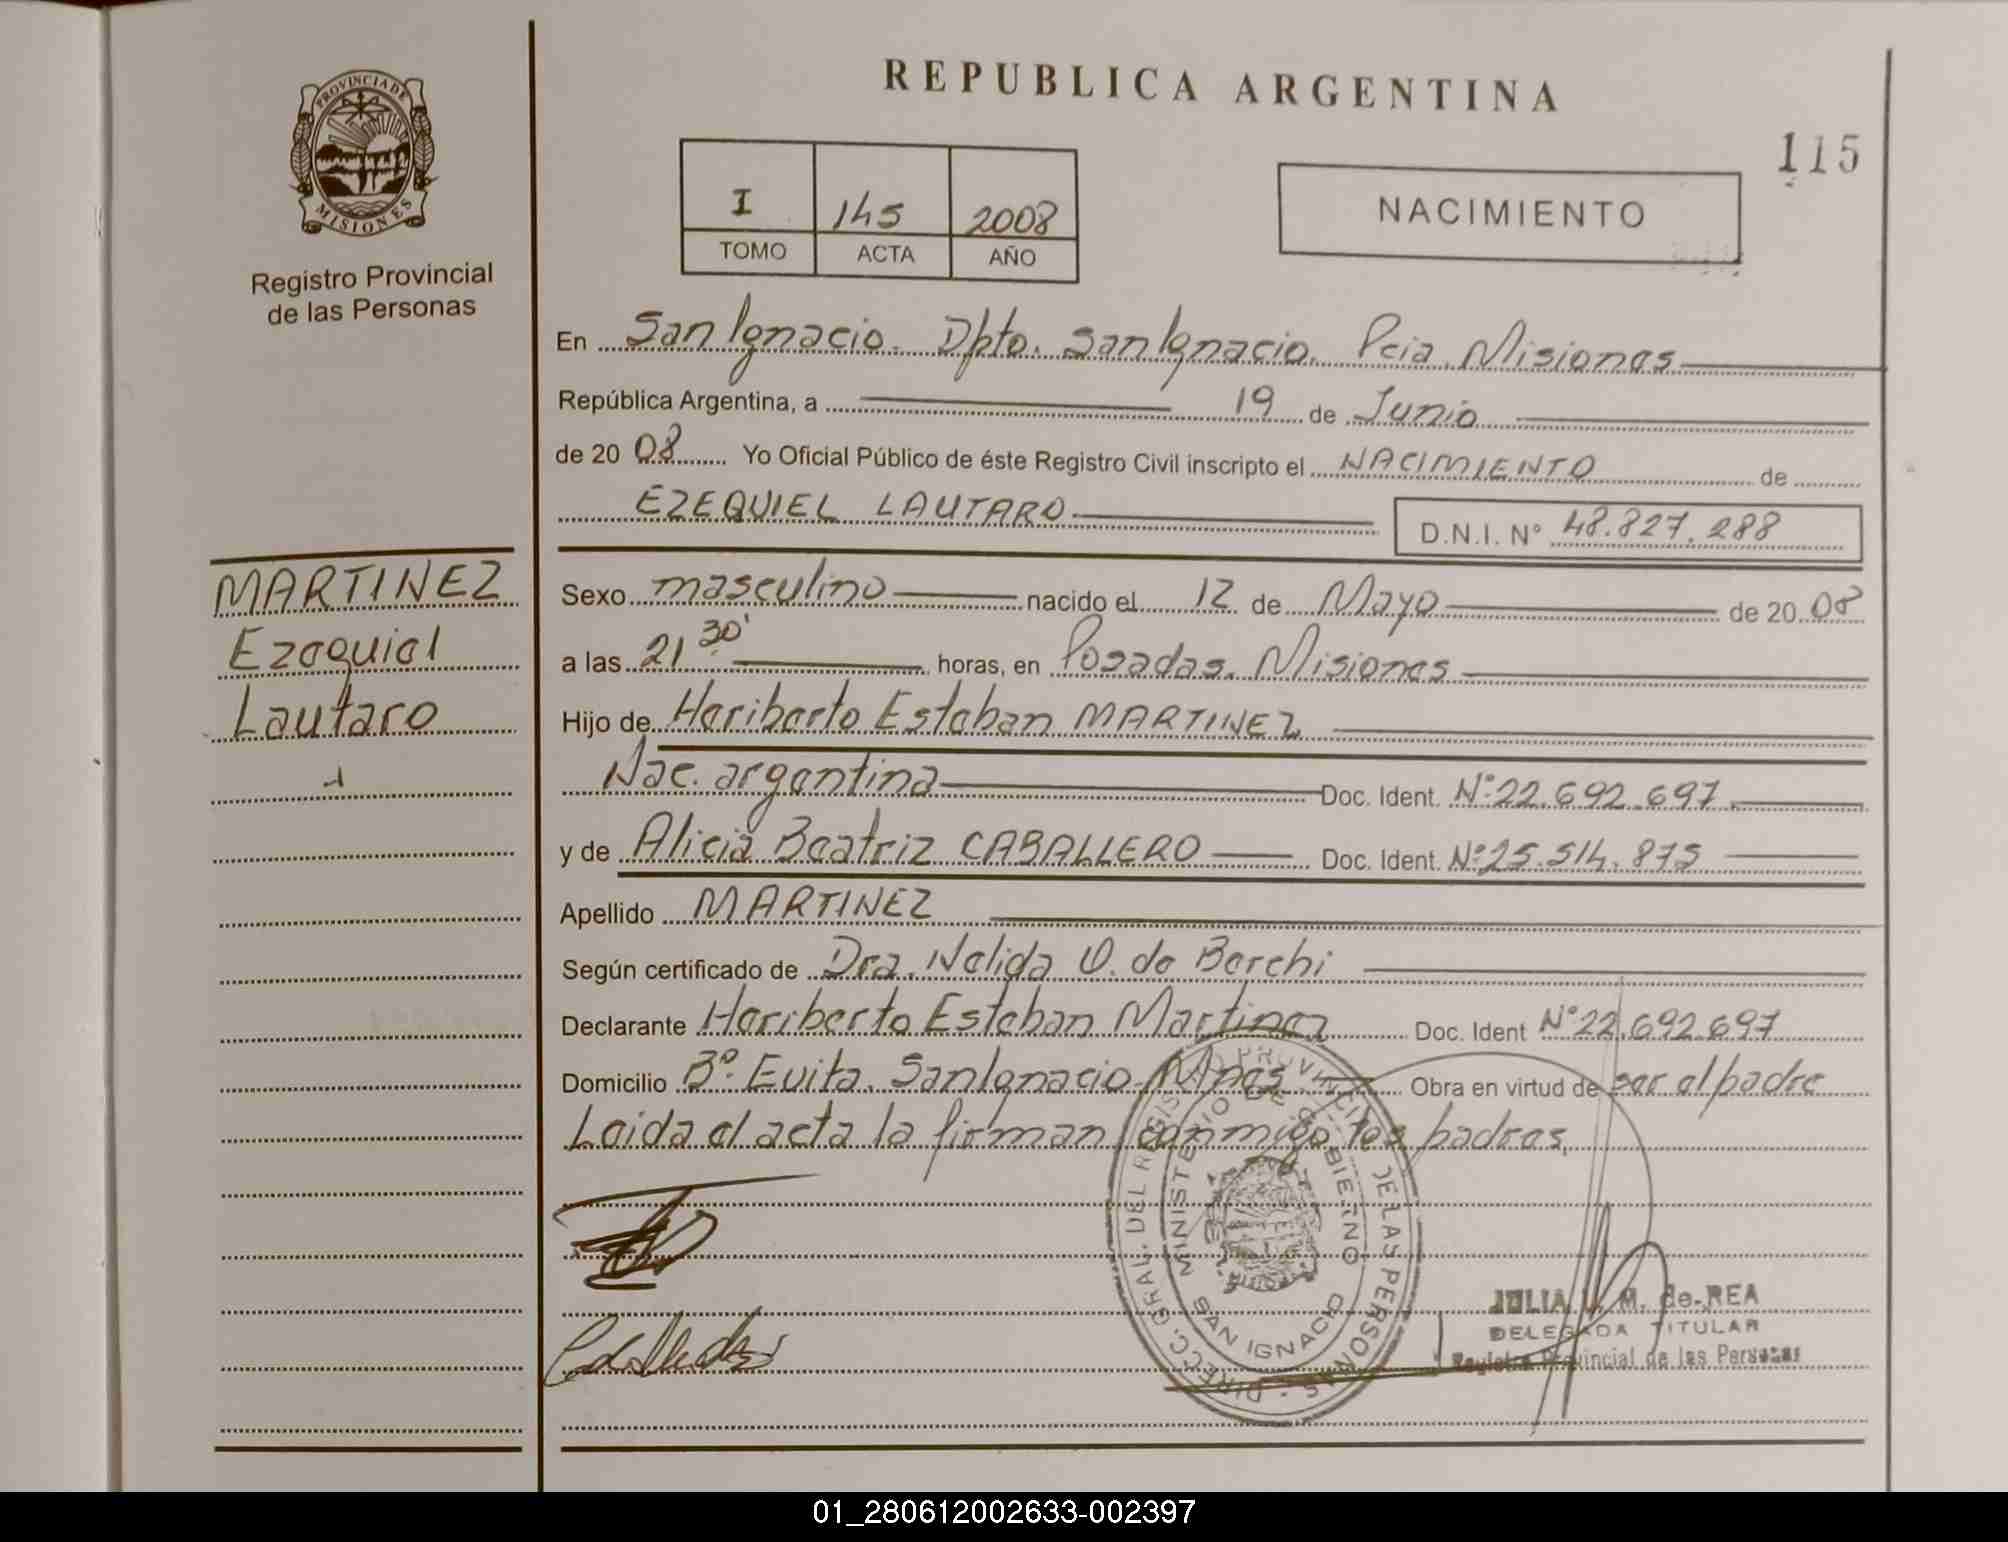 PROVINCIA DE
MISIONES
Registro Provincial
de las Personas
REPUBLICA ARGENTINA
115
I 145 2008
TOMO ACTA AÑO
NACIMIENTO
En San Ignacio. Dpto. San Ignacio. Pcia. Misiones
República Argentina, a 19 de Junio
de 20 08 Yo Oficial Público de éste Registro Civil inscripto el NACIMIENTO de
EZEQUIEL LAUTARO D.N.I. Nº 48.827.288
MARTINEZ
Ezequiel
Lautaro
Sexo masculino nacido el 12 de Mayo de 20 08
a las 21 30' horas, en Posadas. Misiones
Hijo de Heriberto Esteban MARTINEZ
Nac. argentina Doc. Ident. Nº 22.692.697
y de Alicia Beatriz CABALLERO Doc. Ident. Nº 25.514.875
Apellido MARTINEZ
Según certificado de Dra. Nelida O. de Berchi
Declarante Heriberto Esteban Martinez Doc. Ident Nº 22.692.697
Domicilio Bº. Evita. San Ignacio. Mnes Obra en virtud de ser el padre
Leida el acta la firman conmigo los padres,
DIRECC. GRAL. DEL REGISTRO PROVINCIAL DE LAS PERSONAS
MINISTERIO DE GOBIERNO
SAN IGNACIO
JULIA M. de REA
DELEGADA TITULAR
Registro Provincial de las Personas
01_280612002633-002397